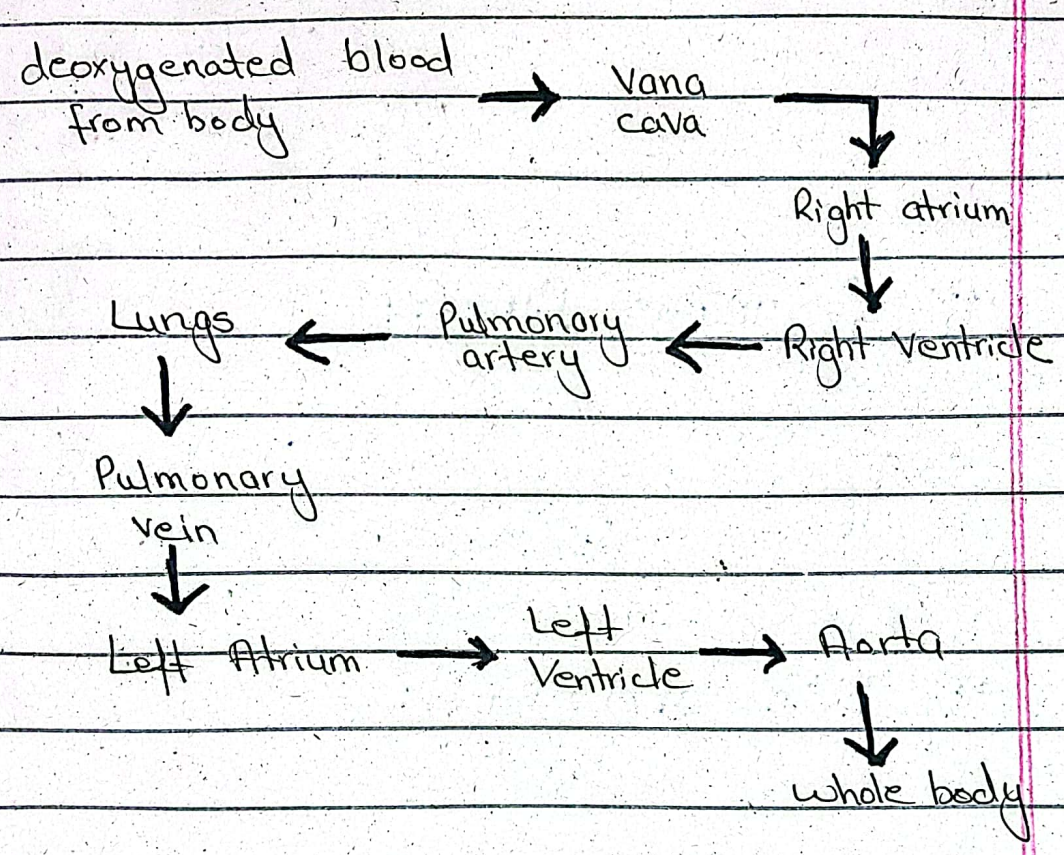 deoxygenated blood
from body
Vana
cava
Right atrium
Right Ventricle
Pulmonary
artery
Lungs
Pulmonary
vein
Left Atrium
Left
Ventricle
Aorta
whole body